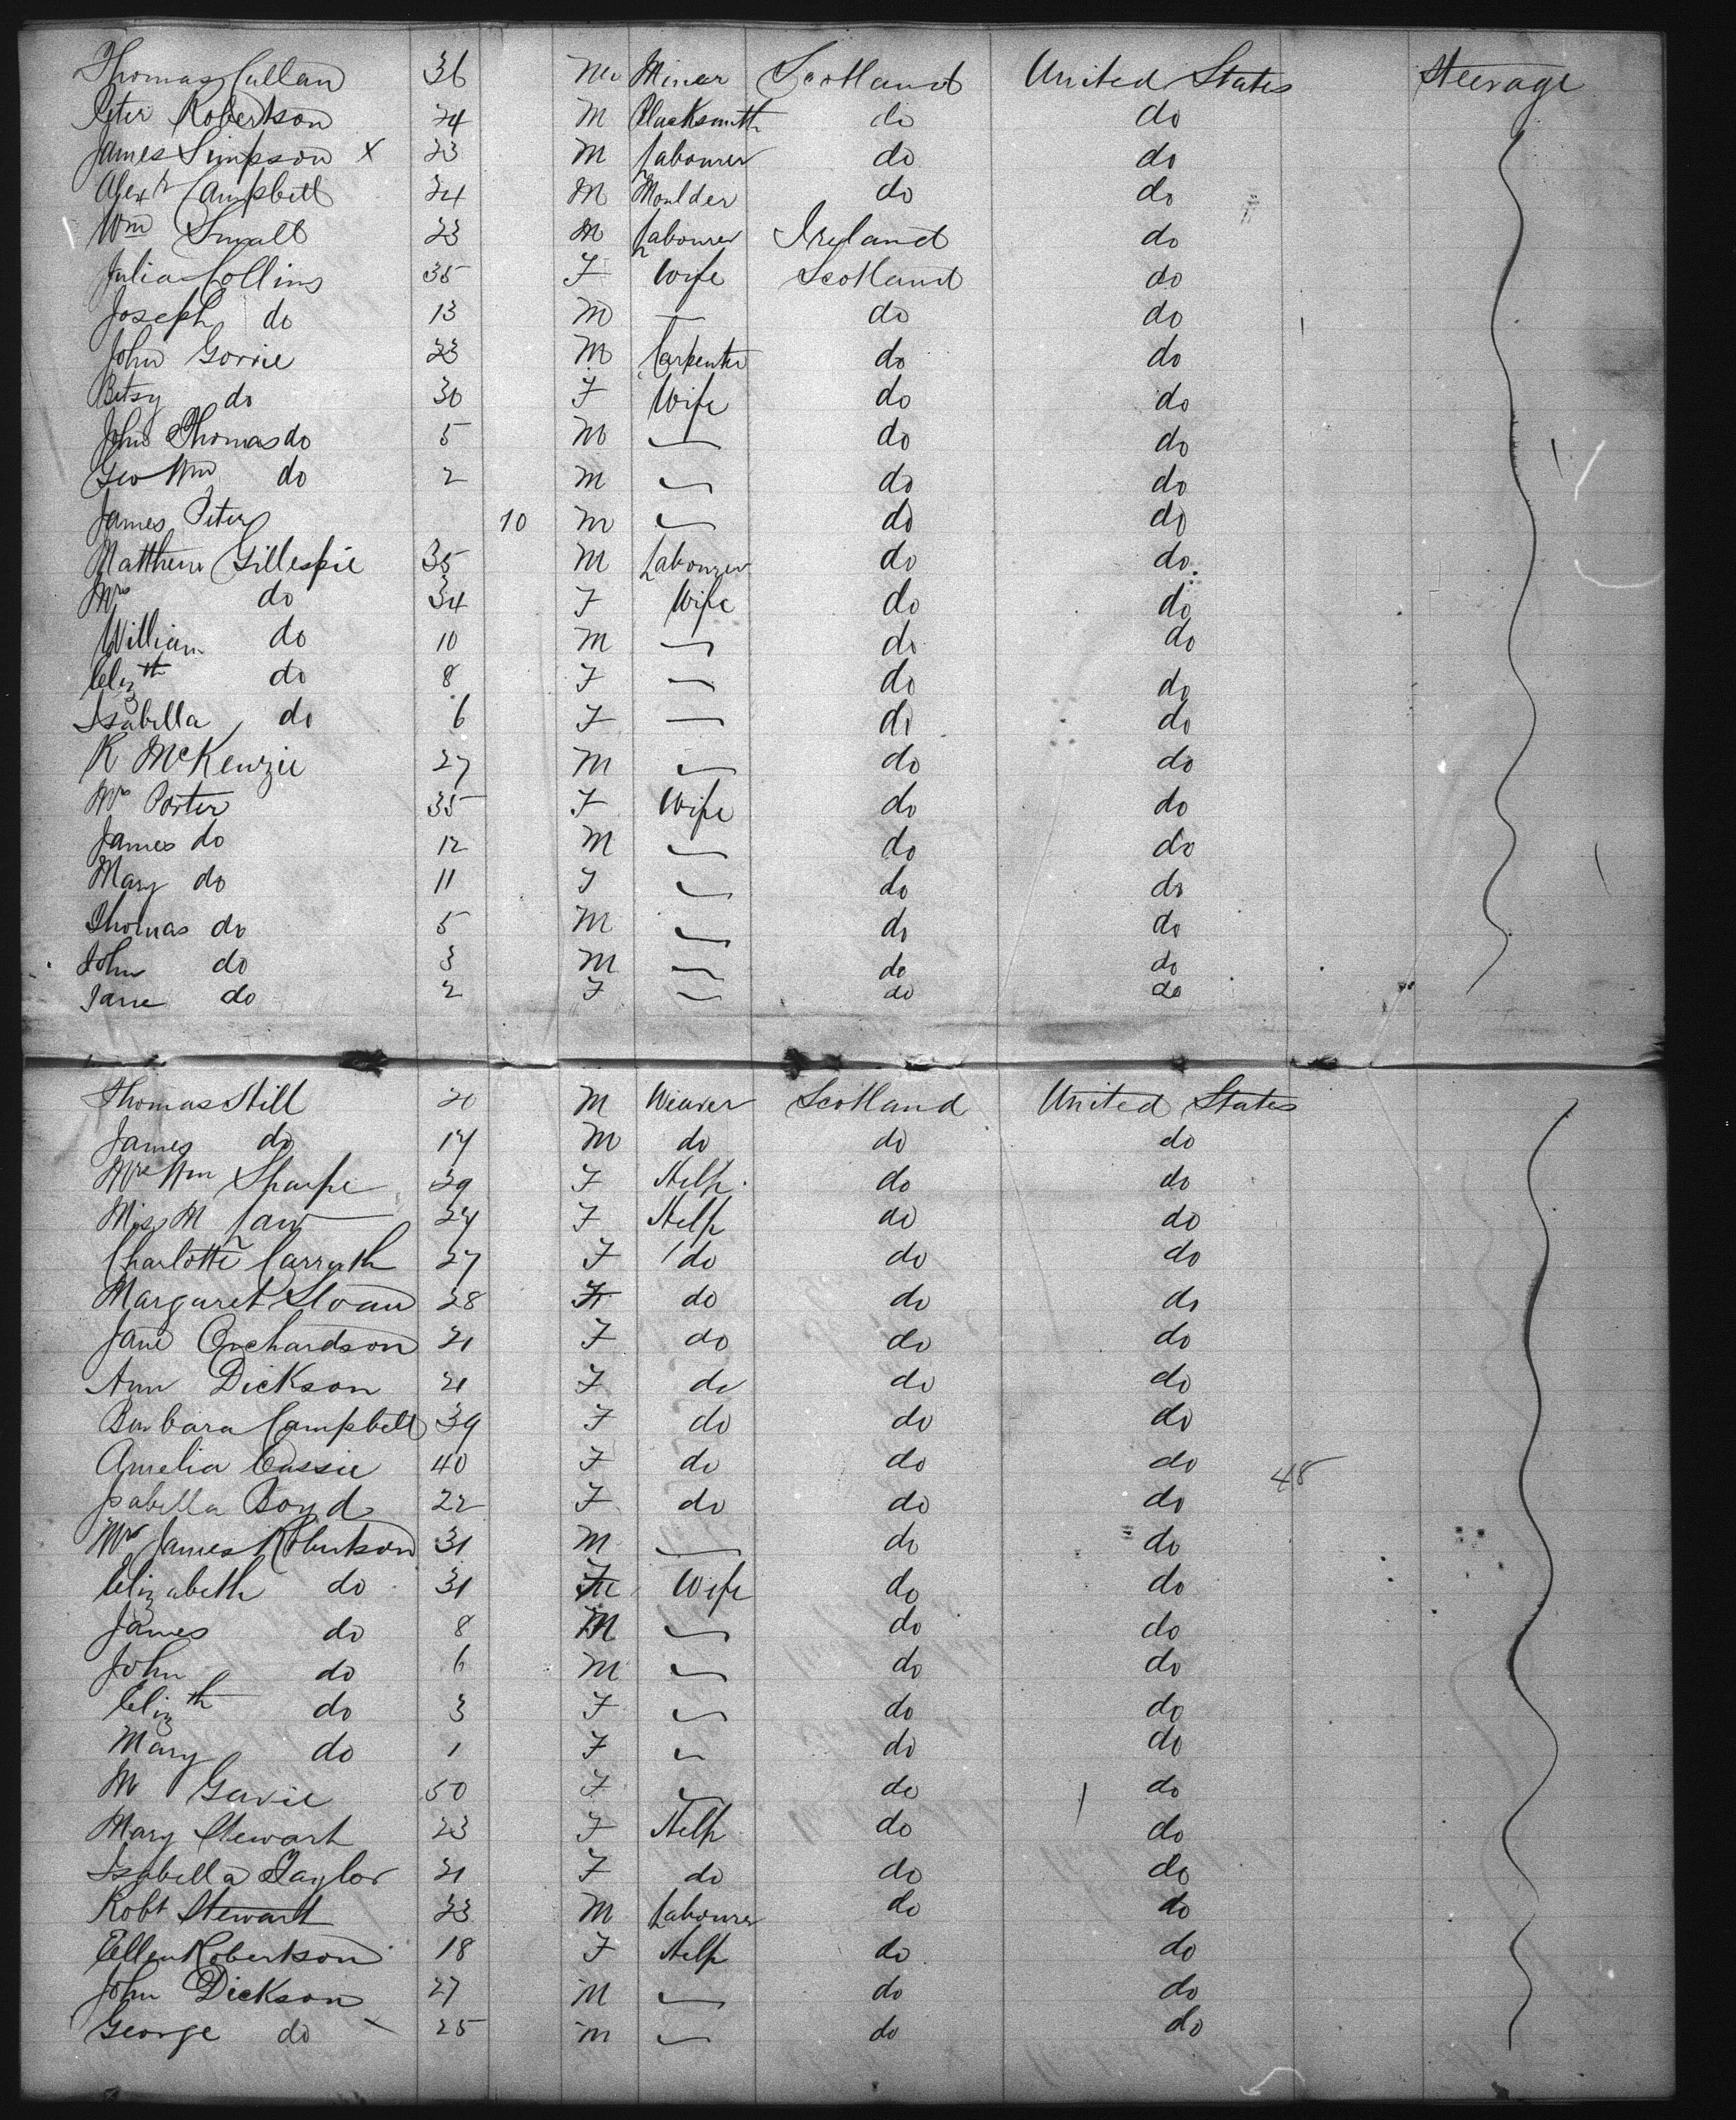 Thomas Cullan 36 M Miner Scotland United States Steerage
Peter Robertson 24 M Blacksmith do do
James Simpson X 23 M Labourer do do
Alexr Campbell 24 M Moulder do do
Wm Small 23 M Labourer Ireland do
Julia Collins 35 F Wife Scotland do
Joseph do 13 M — do do
John Gorrie 33 M Carpenter do do
Betsy do 30 F Wife do do
John Thomas do 5 M — do do
Geo Wm do 2 M — do do
James Peter 10 M — do do
Matthew Gillespie 35 M Labourer do do
Mrs do 34 F Wife do do
William do 10 M — do do
Elizth do 8 F — do do
Isabella do 6 F — do do
R McKenzie 27 M — do do
Mrs Porter 35 F Wife do do
James do 12 M — do do
Mary do 11 F — do do
Thomas do 5 M — do do
John do 3 M — do do
Jane do 2 F — do do
Thomas Hill 20 M Weaver Scotland United States
James do 14 M do do do
Mrs Wm Sharpe 39 F Help do do
Miss M Law 24 F Help do do
Charlotte Carruth 27 F do do do
Margaret Sloan 28 F do do do
Jane Orchardson 21 F do do do
Ann Dickson 21 F do do do
Barbara Campbell 39 F do do do
Amelia Cassie 40 F do do do 48
Isabella Boyd 22 F do do do
Mr James Robertson 31 M — do do
Elizabeth do 31 F Wife do do
James do 8 M — do do
John do 6 M — do do
Elizth do 3 F — do do
Mary do 1 F — do do
M Gavie 50 F — do do
Mary Stewart 23 F Help do do
Isabella Taylor 21 F do do do
Robt Stewart 23 M Labourer do do
Ellen Robertson 18 F Help do do
John Dickson 27 M — do do
George do 25 M — do do